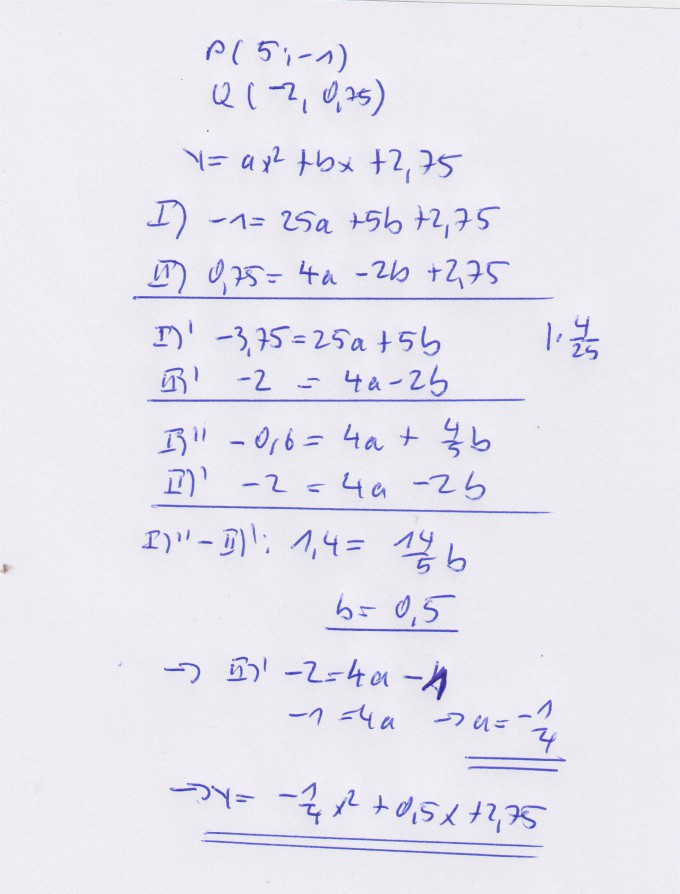 P(5;-1)
Q(-2, 0,75)
y= ax² +bx +2,75
I) -1= 25a +5b +2,75
II) 0,75= 4a -2b +2,75
I)' -3,75=25a+5b |· 4/25
II)' -2 = 4a-2b
I)'' -0,6= 4a + 4/5 b
II)' -2 = 4a -2b
I)''-II)': 1,4= 14/5 b
b= 0,5
→ II)' -2=4a-1
-1=4a → a= -1/4
→ y= -1/4 x² +0,5x +2,75